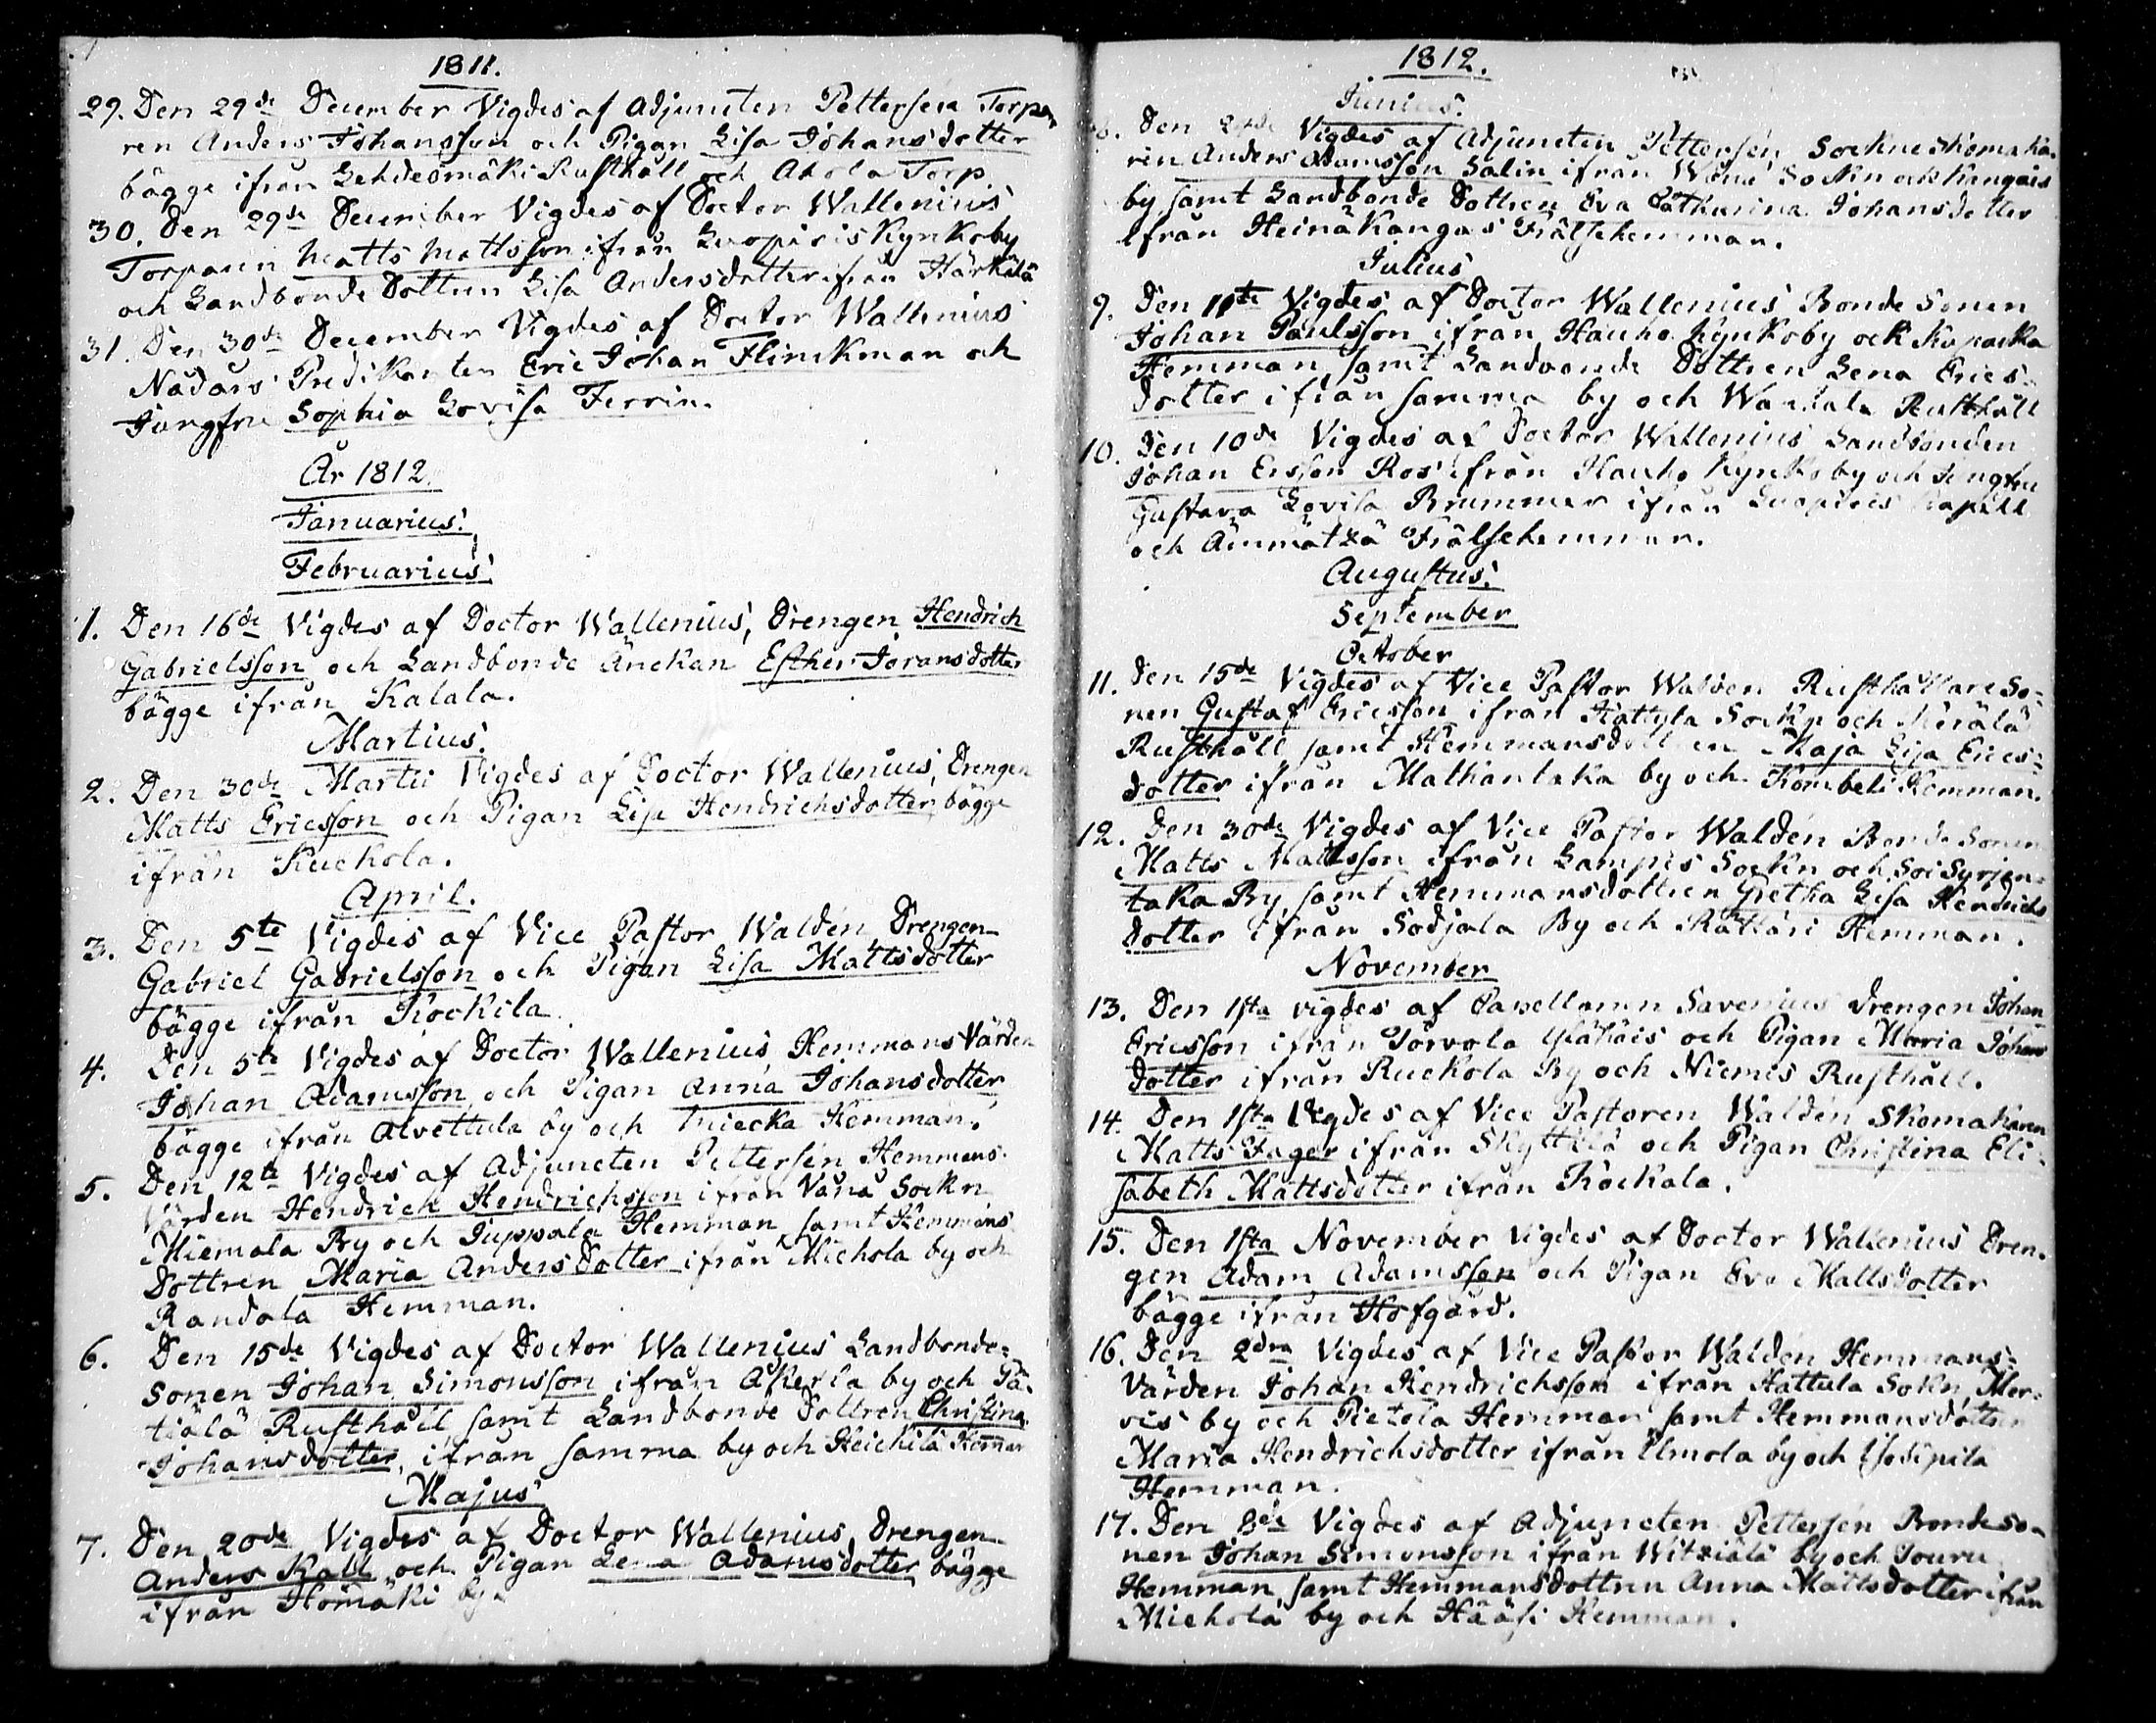 1811.
29. Den 29de December Vigdes af Adjuncten Pettersen Torpa-
ren Anders Johansson och Pigan Lisa Johansdotter
bägge ifrån Lehdesmäki Rusthåll och Ahola Torp
30. Den 29de December Vigdes af Doctor Wallenius
Torparen Matts Mattsson ifrån Luopiois Kyrkoby
och Landbonde Dottren Lisa Andersdotter ifrån Härkälä
31. Den 30de December Vigdes af Doctor Wallenius
Nådårs Predikanten Eric Johan Flinckman och
Jungfru Sophia Lovisa Ferrin.
År 1812.
Januarius.
Februarius.
1. Den 16de Vigdes af Doctor Wallenius, Drengen Hendrich
Gabrielsson och Landbonde Änckan Esther Joransdotter
bägge ifrån Kalala.
Martius.
2. Den 30de Martii Vigdes af Doctor Wallenius, Drengen
Matts Ericsson och Pigan Lisa Hendrichsdotter bägge
ifrån Ruckola.
April.
3. Den 5te Vigdes af Vice Pastor Waldén Drengen
Gabriel Gabrielsson och Pigan Lisa Mattsdotter
bägge ifrån Kockila.
4. Den 5te Vigdes af Doctor Wallenius Hemmans Värden
Johan Adamsson och Pigan Anna Johansdotter
bägge ifrån Alvettula by och Miecka Hemman.
5. Den 12te Vigdes af Adjuncten Pettersén Hemmans-
Värden Hendrich Hendrichsson ifrån Vånå Sockn
Miemala By och Juppala Hemman samt Hemmans
Dottren Maria Andersdotter ifrån Miehola by och
Randala Hemman.
6. Den 15de Vigdes af Doctor Wallenius Landbonde-
Sonen Johan Simonsson ifrån Askerla by och Pä-
tiälä Rusthåll samt Landbonde Dottren Christina
Johansdotter, ifrån samma by och Heickilä Hemman
Majus
7. Den 20de Vigdes af Doctor Wallenius Drengen
Anders Kall och Pigan Lena Adamsdotter bägge
ifrån Homäki by.
1812.
Junius.
8. Den Vigdes af Adjuncten Pettersén Sockne Skomaka-
ren Anders Adamsson Salin ifrån Wånå Sockn och Kangais
by samt Landbonde Dottren Eva Catharina Johansdotter
ifrån Heinäkangas Frälsehemman.
Julius
9. Den 10te Vigdes af Doctor Wallenius Bonde Sonen
Johan Paulsson ifrån Hauho Kyrkoby och Kuparka
Hemman, samt Landbonde Dottren Lena Erics-
dotter ifrån samma by och Wandala Rusthåll
10. Den 10de Vigdes af Doctor Wallenius Landbonden
Johan Ersson Ros ifrån Hauho Kyrkoby och Jungfru
Gustava Lovisa Brummer ifrån Luopiois Capell
och Ämmätzä Frälsehemman.
Augustus.
September
October
11. Den 15de Vigdes af Vice Pastor Walden Rusthållare So-
nen Gustaf Ericsson ifrån Hattula Sockn och Kerälä
Rusthåll samt Hemmansdottren Maja Lisa Erics-
dotter ifrån Matkantaka by och Kombeli Hemman.
12. Den 30de Vigdes af Vice Pastor Waldén Bonde Sonen
Matts Mattsson ifrån Lampis Sockn och Syrjän-
taka By, samt Hemmansdottren Gretha Lisa Hendrichs
dotter ifrån Sodjala By och Rattari Hemman.
November
13. Den 1sta vigdes af Capellanen Savenius drengen Johan
Ericsson ifrån Torvola och Pigan Maria Johans
dotter ifrån Ruckola By och Niemis Rusthåll.
14. Den 1sta Vigdes af Vice Pastoren Waldén Skomakaren
Matts Fager ifrån Skyttälä och Pigan Christina Eli-
sabeth Mattsdotter ifrån Kockala.
15. Den 1sta November Vigdes af Doctor Wallenius Dren-
gen Adam Adamsson och Pigan Eva Mattsdotter
bägge ifrån Hofgård.
16. Den 2dra Vigdes af Vice Pastor Walden Hemmans-
Värden Johan Hendrichsson ifrån Hattula Sokn, Mer-
vis by och Pietola Hemman samt Hemmansdottren
Maria Hendrichsdotter ifrån Ilmola by och Isosipila
Hemman.
17. Den 8de Vigdes af Adjuncten Pettersén Bondeso-
nen Johan Simonsson ifrån Witziälä by och Jouru
Hemman, samt Hemmansdottren Anna Mattsdotter ifrån
Miehola by och Hääsi Hemman.